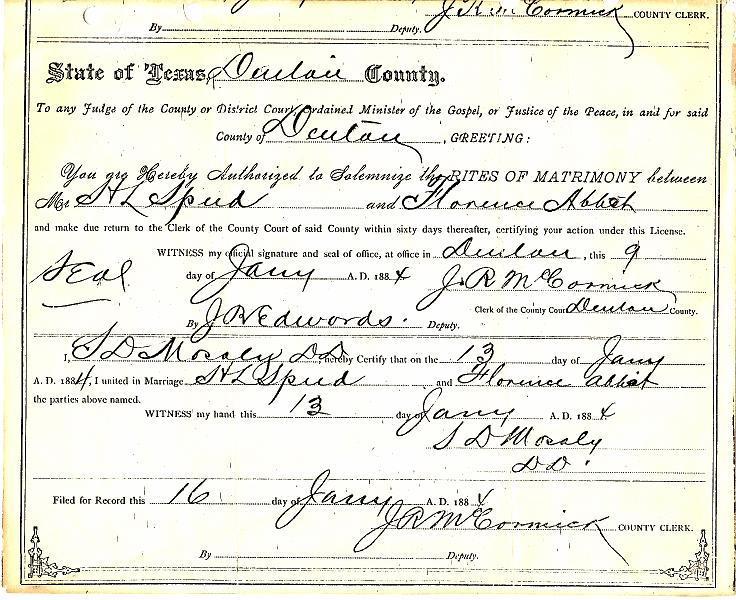 J R McCormick COUNTY CLERK.
By Deputy.
State of Texas, Denton County.
To any Judge of the County or District Court, Ordained Minister of the Gospel, or Justice of the Peace, in and for said
County of Denton, GREETING:
You are Hereby Authorized to Solemnize the RITES OF MATRIMONY between
Mr H L Spud and Florence Abbot
and make due return to the Clerk of the County Court of said County within sixty days thereafter, certifying your action under this License.
WITNESS my official signature and seal of office, at office in Denton, this 9
Seal day of Jany A. D. 1884 J. R McCormick
Clerk of the County Court Denton County.
By J R Edwords. Deputy.
I, S D Mosaly DD, hereby Certify that on the 13 day of Jany
A. D. 1884, I united in Marriage H L Spud and Florence Abbot
the parties above named.
WITNESS my hand this 13 day of Jany A. D. 1884
S D Mosaly
DD.
Filed for Record this 16 day of Jany A. D. 1884
J R McCormick COUNTY CLERK.
By Deputy.